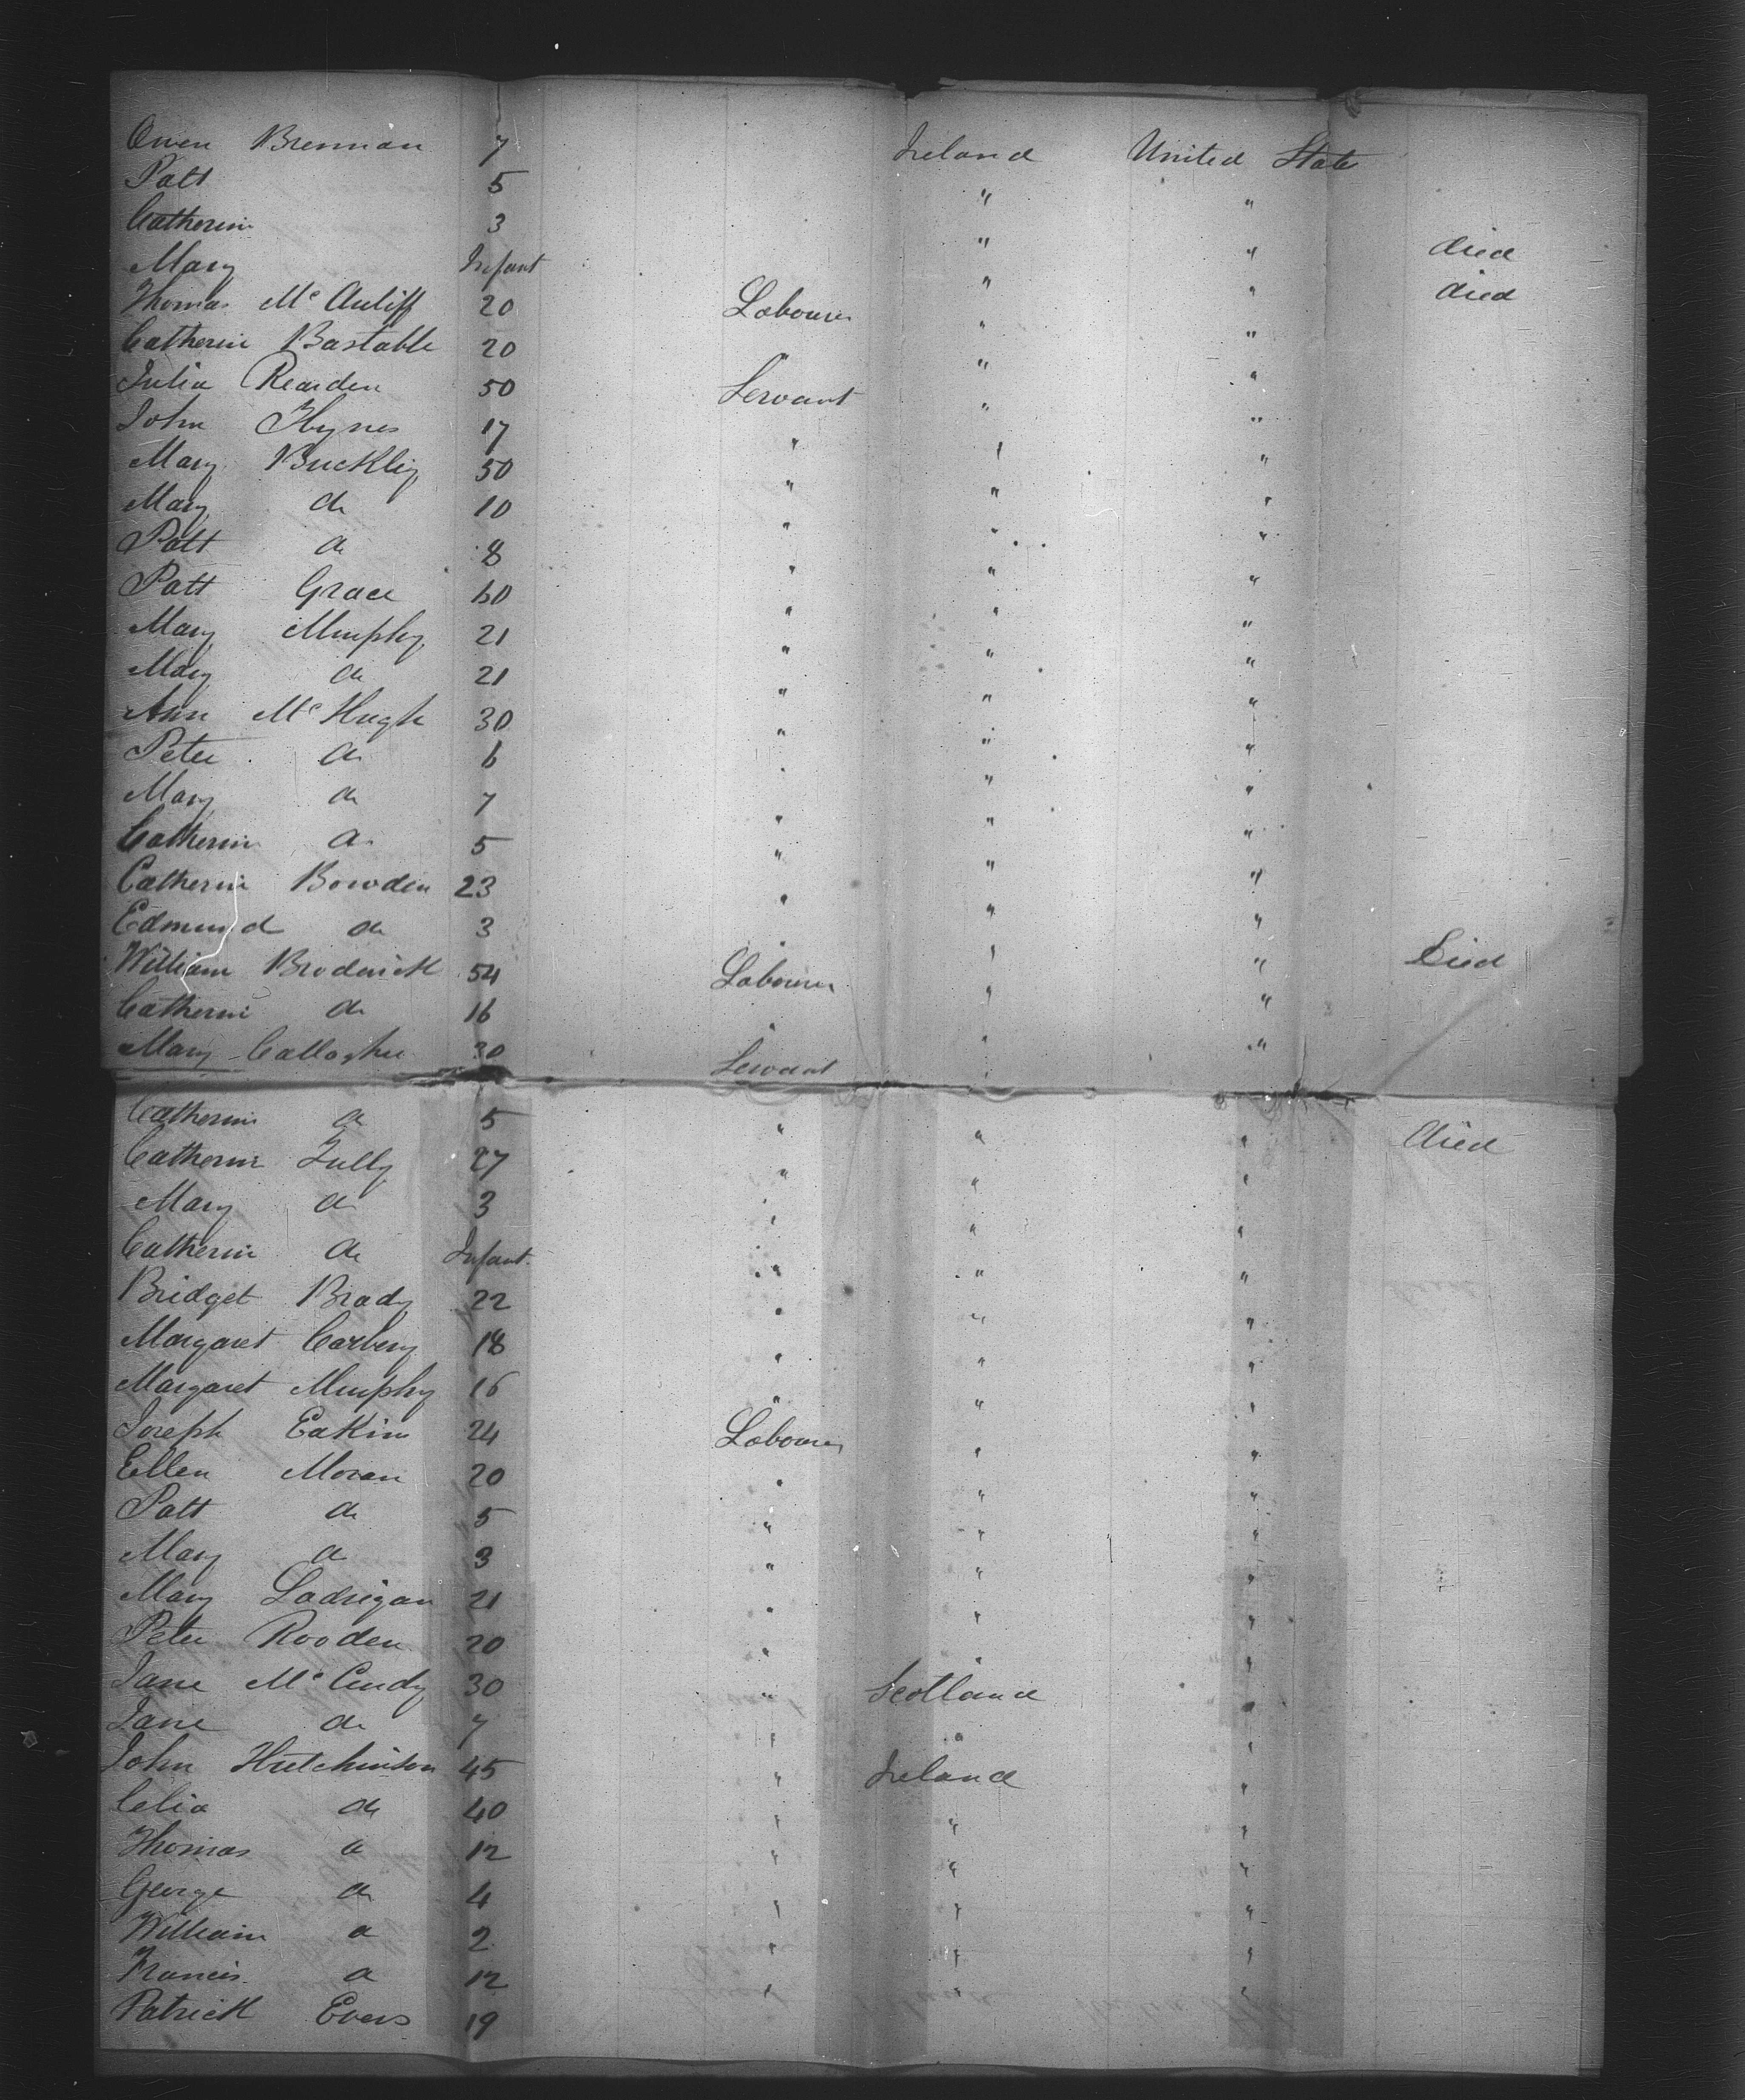 Owen Brennan 7 Ireland United State
Patt 5 " "
Catherin 3 " " died
Mary Infant " " died
Thomas McAuliff 20 Labourer " "
Catherin Bastable 20 " "
Julia Rearden 50 Servant " "
John Hynes 17 " " "
Mary Buckley 50 " " "
Mary do 10 " " "
Patt do 8 " " "
Patt Grace 60 " " "
Mary Murphy 21 " " "
Mary do 21 " " "
Ann McHugh 30 " " "
Peter do 6 " " "
Mary do 7 " " "
Catherin do 5 " " "
Catherin Bowden 23 " " "
Edmund do 3 " " "
William Broderick 54 Labourer " " Died
Catherin do 16 " " "
Mary Callagher 30 Servant " "
Catherin do 5 " " " died
Catherin Tully 27 " " "
Mary do 3 " " "
Catherin do Infant " " "
Bridget Brady 22 " " "
Margaret Carbery 18 " " "
Margaret Murphy 16 " " "
Joseph Eakin 24 Labourer " "
Ellen Moran 20 " " "
Patt do 5 " " "
Mary do 3 " " "
Mary Ladrigan 21 " " "
Peter Rooden 20 " " "
Jane 30 " Scotland "
Jane do 7 " " "
John Hutchinson 45 " Ireland "
Celia do 40 " " "
Thomas do 12 " " "
George do 4 " " "
William do 2 " " "
Francis do 12 " " "
Patrick Evers 19